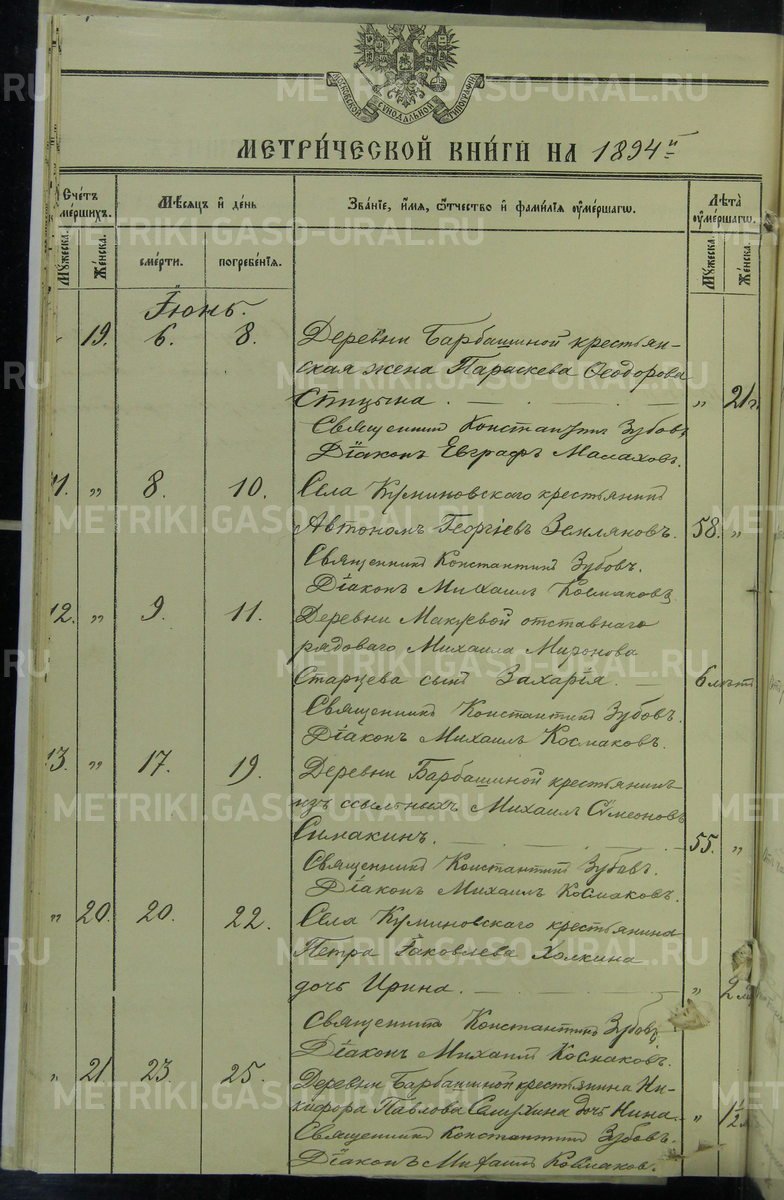 МОСКОВСКОЙ СѴНОДАЛЬНОЙ ТИПОГРАФІИ
МЕТРИ́ЧЕСКОЙ КНИ́ГИ НА 1894 й
Сче́тъ ᲂу҆ме́ршихъ.
Мѣ́сяцъ и҆ де́нь
Зва́нїе, и҆́мя, ѻ҆́тчество и҆ фами́лїя ᲂу҆ме́ршагѡ.
Лѣ́та ᲂу҆ме́ршагѡ.
Му́жеска.
Же́нска.
сме́рти.
погребе́нїя.
Му́жеска.
Же́нска.
Іюнь.
19. 6. 8. Деревни Барбашиной крестьян-
ская жена Параскева Ѳеодорова
Спицына. „ 21 г.
Священникъ Константинъ Зубовъ
Діаконъ Евграфъ Малаховъ.
11. „ 8. 10. Села Куминовскаго крестьянинъ
Автономъ Георгіевъ Земляковъ. 58. „
Священникъ Константинъ Зубовъ.
Діаконъ Михаилъ Космаковъ
12. „ 9. 11. Деревни Макуевой отставнаго
рядоваго Михаила Миронова
Старцева сынъ Захарія. 6 лѣтъ
Священникъ Константинъ Зубовъ.
Діаконъ Михаилъ Космаковъ.
13. „ 17. 19. Деревни Барбашиной крестьянинъ
изъ ссыльныхъ Михаилъ Сѵмеоновъ
Симакинъ. 55. „
Священникъ Константинъ Зубовъ.
Діаконъ Михаилъ Космаковъ.
„ 20. 20. 22. Села Куминовскаго крестьянина
Петра Іаковлева Холкина
дочь Ирина. „ 2
Священникъ Константинъ Зубовъ
Діаконъ Михаилъ Космаковъ.
„ 21 23. 25. Деревни Барбашиной крестьянина Ни-
кифора Павлова дочь Нина „ 1½
Священникъ Константинъ Зубовъ.
Діаконъ Михаилъ Космаковъ.
METRIKI.GASO-URAL.RU